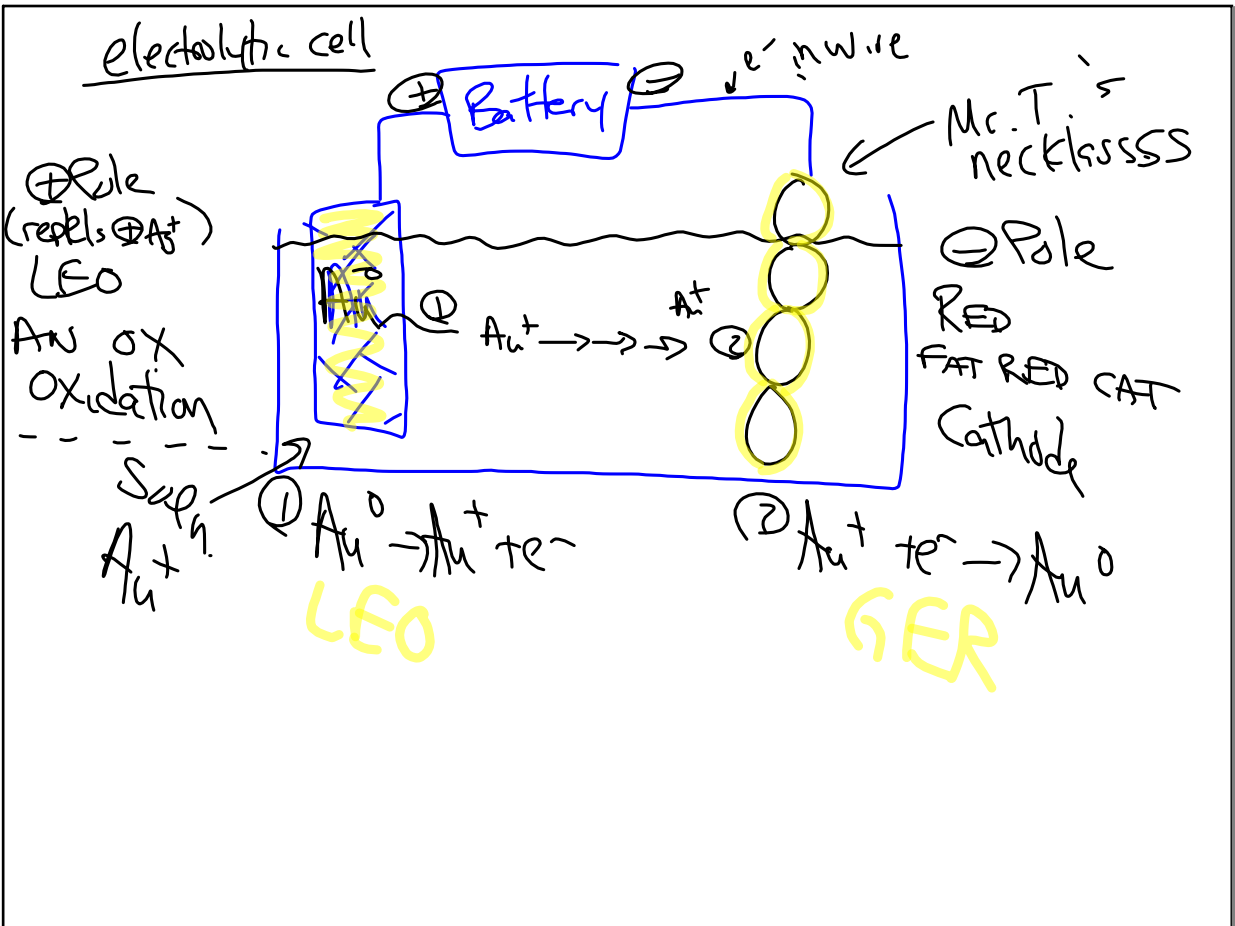 electrolytic cell
⊕ Battery ⊖
e⁻ in wire
Mr. T.'s
necklassss
⊕ Pole
(repels ⊕ Au⁺)
LEO
AN OX
Oxidation
Au⁰
①
Au⁺ →→→ Au⁺
②
⊖ Pole
RED
FAT RED CAT
Cathode
Au⁺
① Au⁰ → Au⁺ + e⁻
LEO
② Au⁺ + e⁻ → Au⁰
GER